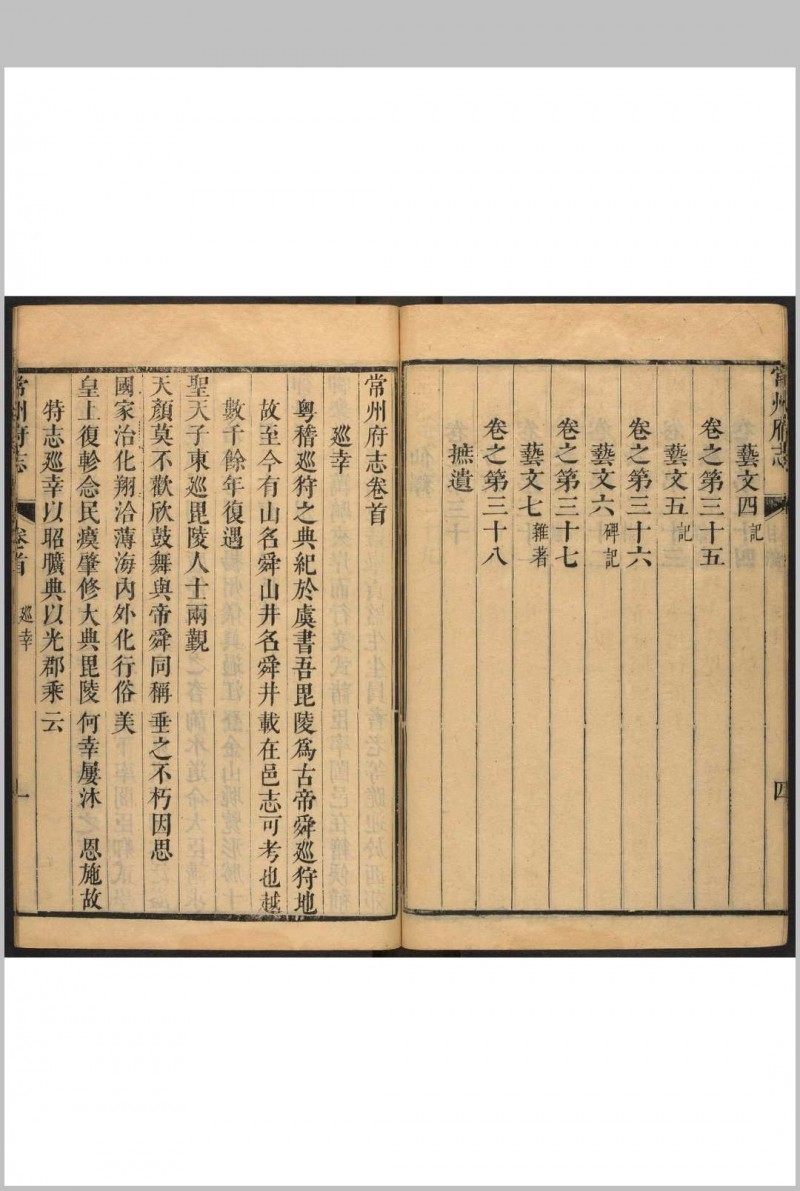 常州府志
四
藝文四 記
卷之第三十五
藝文五 記
卷之第三十六
藝文六 碑記
卷之第三十七
藝文七 雜著
卷之第三十八
摭遺
常州府志卷首
巡幸
粵稽巡狩之典紀於虞書吾毘陵爲古帝舜巡狩地
故至今有山名舜山井名舜井載在邑志可考也越
數千餘年復遇
聖天子東巡毘陵人士兩覲
天顏莫不歡欣鼓舞與帝舜同稱垂之不朽因思
國家治化翔洽薄海內外化行俗美
皇上復軫念民瘼肇修大典毘陵何幸屢沐 恩施故
特志巡幸以昭曠典以光郡乘云
常州府志 卷首 巡幸 一